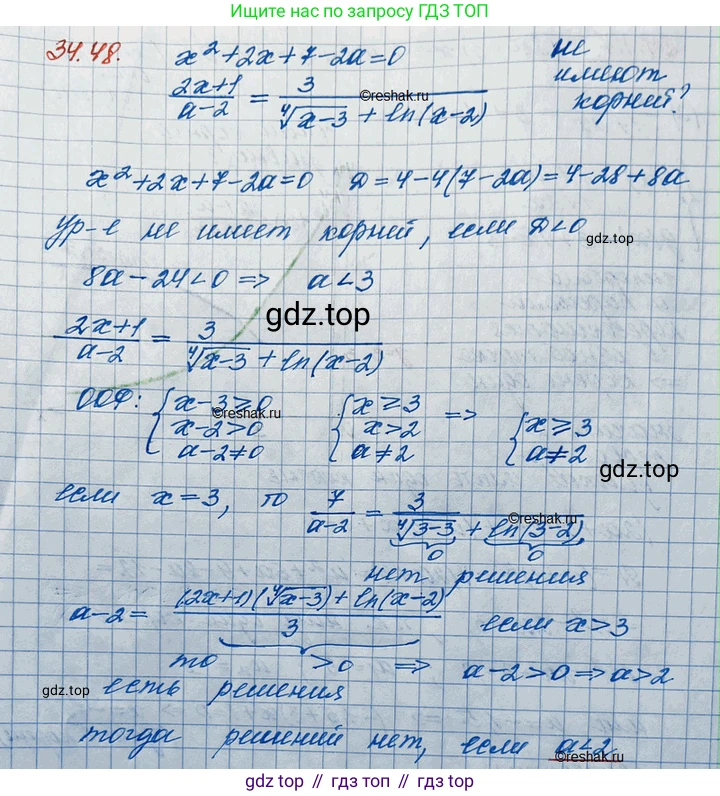 Ищите нас по запросу ГДЗ ТОП
34.48. x² + 2x + 7 - 2a = 0 не
(2x+1)/(a-2) = 3/(⁴√(x-3) + ln(x-2)) имеют
корней?
©reshak.ru
x² + 2x + 7 - 2a = 0 D = 4 - 4(7 - 2a) = 4 - 28 + 8a
Ур-е не имеет корней, если D < 0
gdz.top
8a - 24 < 0 => a < 3
gdz.top
(2x+1)/(a-2) = 3/(⁴√(x-3) + ln(x-2))
ООФ: {x - 3 ⩾ 0 {x ⩾ 3 => {x ⩾ 3
x - 2 > 0 x > 2 a ≠ 2
a - 2 ≠ 0 a ≠ 2
©reshak.ru
gdz.top
если x = 3, то 7/(a-2) = 3/(⁴√(3-3) + ln(3-2))
0 0
©reshak.ru
нет решения
a - 2 = ((2x+1)(⁴√(x-3)) + ln(x-2))/3 если x > 3
то > 0 => a - 2 > 0 => a > 2
gdz.top
есть решения
тогда решений нет, если a < 2
©reshak.ru
gdz.top // гдз топ // gdz.top